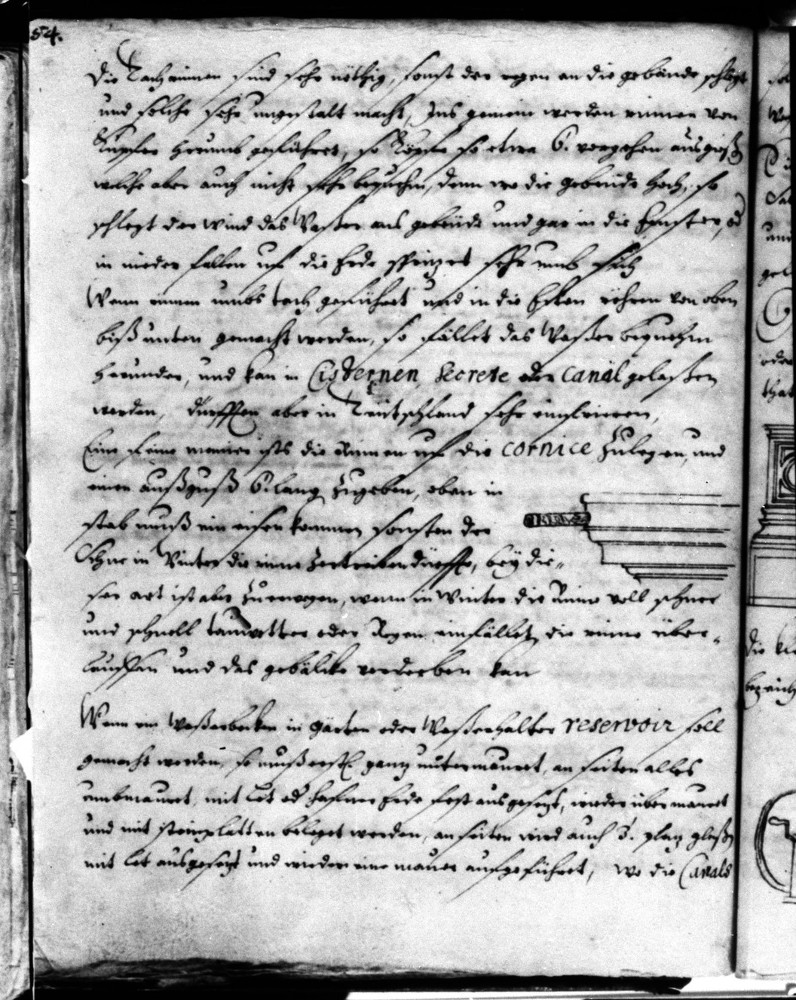 54.
Die Tachrinnen sind sehr nöthig, sonst der regen an die gebäude schlegt
und solche sehr ungestalt macht, Ins gemein werden rinnen von
Kupfer herumb geführet, so Köpfe so etwa 6. vorgehen ausgieß
welche aber auch nicht sehr bequehm, denn wo die gebeude hoch, so
schlegt der wind das Waßer ans gebeude und gar in die fenster,
in nieder fallen uf die Erde sprizet sehr umb sich
Wenn rinnen umbs tach geführet und in die Ecken röhren von oben
biß unten gemacht werden, so fället das Waßer bequehm
herunder, und kan in Cisternen Secrete oder Canäl gelaßen
werden, dürfften aber in Teutschland sehr einfrieren,
Eine feine manier ists die Rinnen uf die cornice zulegen, und
einen außguß 6. lang zugeben, oben in
stab muß ein eisen kommen sonsten der
Schne in Winter die rinne zertreiben dürffte, bey die-
ser art ist aber zuerwegen, wenn in Winter die Rinne voll schnee
und schnell tauwetter oder Regen einfället, die rinne über-
lauffen und das gebälcke verderben kan
Wenn ein Waßerbecken in gärten oder Waßerhalter reservoir soll
gemacht werden, so muß erstl. ganz untermauret, an seiten alles
umbmauret, mit let od. hafner Erde fest ausgesezt, wieder übermauret
und mit steinplatten beleget werden, an seiten wird auch 3. plaz gelaßen
mit let ausgesezt und wieder eine mauer aufgeführet, wo die Canals